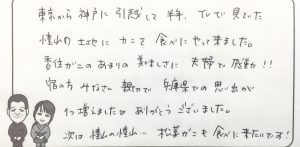 東京から神戸に引越して半年、TVで見ていた
憧れの土地にカニを食べにやって来ました。
香住ガニのあまりの美味しさに夫婦で感動!!
宿の方みなさん親切で兵庫県での思い出が
1つ増えました♡ありがとうございました。
次は憧れの憧れ…松葉がにも食べに来たいです!